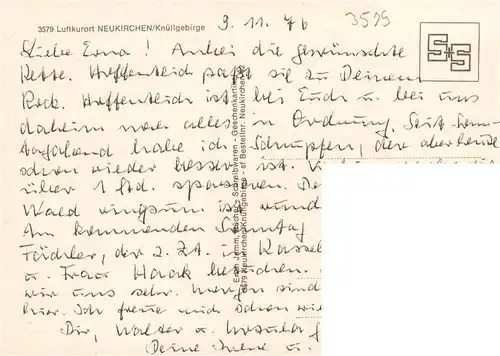 3579 Luftkurort NEUKIRCHEN/Knüllgebirge
9.11.76
3579
S+S
Liebe Erna! Anbei die gewünschte
Kette. Hoffentlich paßt sie zu Deinem
Rock. Hoffentlich ist bei Euch u. bei uns
daheim noch alles in Ordnung. Seit
habe ich Schnupfen, der aber heute
schon wieder besser ist.
über 1 Std. spazieren.
Wald ringsum ist
Am kommenden Sonntag
der z. Zt. in Kassel
u. Frau Haack besuchen.
wir uns sehr. Morgen sind
hier. Ich freue mich schon
Dir, Walter u. Ursula
Deine Irene u.
Erich Jemm, Bücher - Schreibwaren - Geschenkartikel
3579 Neukirchen/Knüllgebirge - sf Bestellnr. Neukirchen